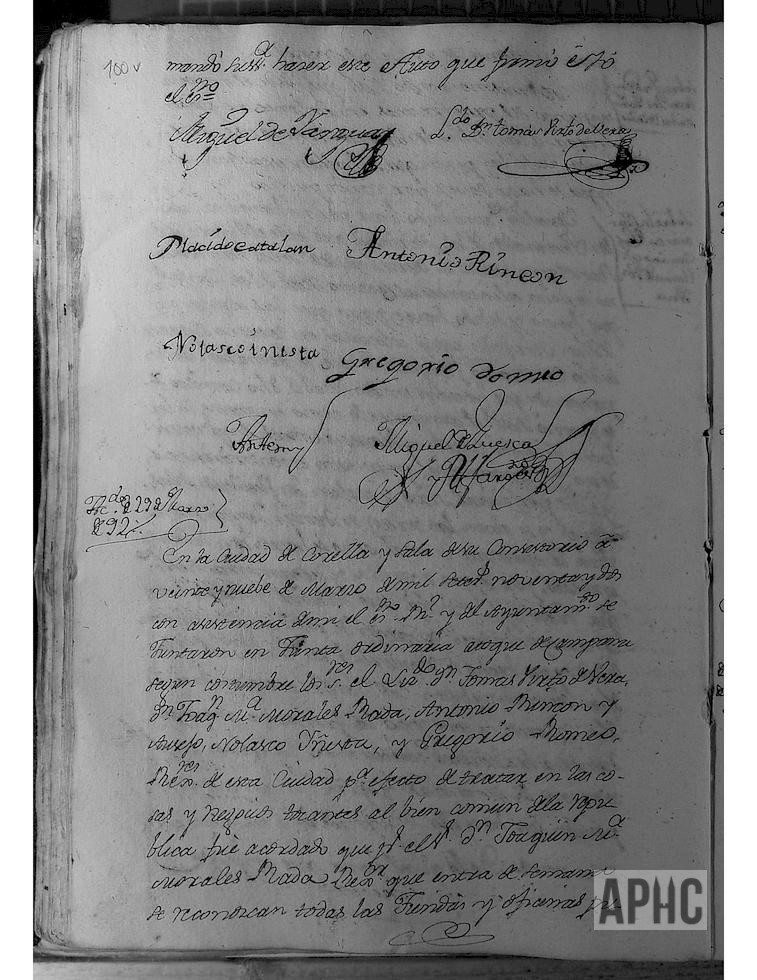 100v
mandó su sª. hacer este Auto que firmó è Yó
el essno =
Miguel de
L.do Dn. tomas Virto de Vera
Placido catalan Antonio Rincon
Nolasco inista Gregorio Romeo
Antemy Miguel de Luesca
y
Re.do de 29 de Marzo
de 92
En la Ciudad de Corella y Sala de su Consistorio â
veinte y nuebe de Marzo de mil setez.s noventa y dos
con asistencia de mi el essno R.l y del Ayuntam.to se
Juntaron en Junta ordinaria atoque de Campana
segun costumbre los S.res el Liz.do Dn Tomas Virto de Vera,
Dn Joaq.n M.a Morales Rada, Antonio Rincon y
Ausejo, Nolasco Yñesta, y Gregorio Romeo,
Rex.res de esta Ciudad p.a efecto de tratar en las co-
sas y negocios tocantes al bien comun dela repu-
blica fué acordado que p.r el S.r Dn Joaquin M.a
Morales Rada Rex.or que entra de semana
se reconozcan todas las Tiendas y oficinas pu-
APHC